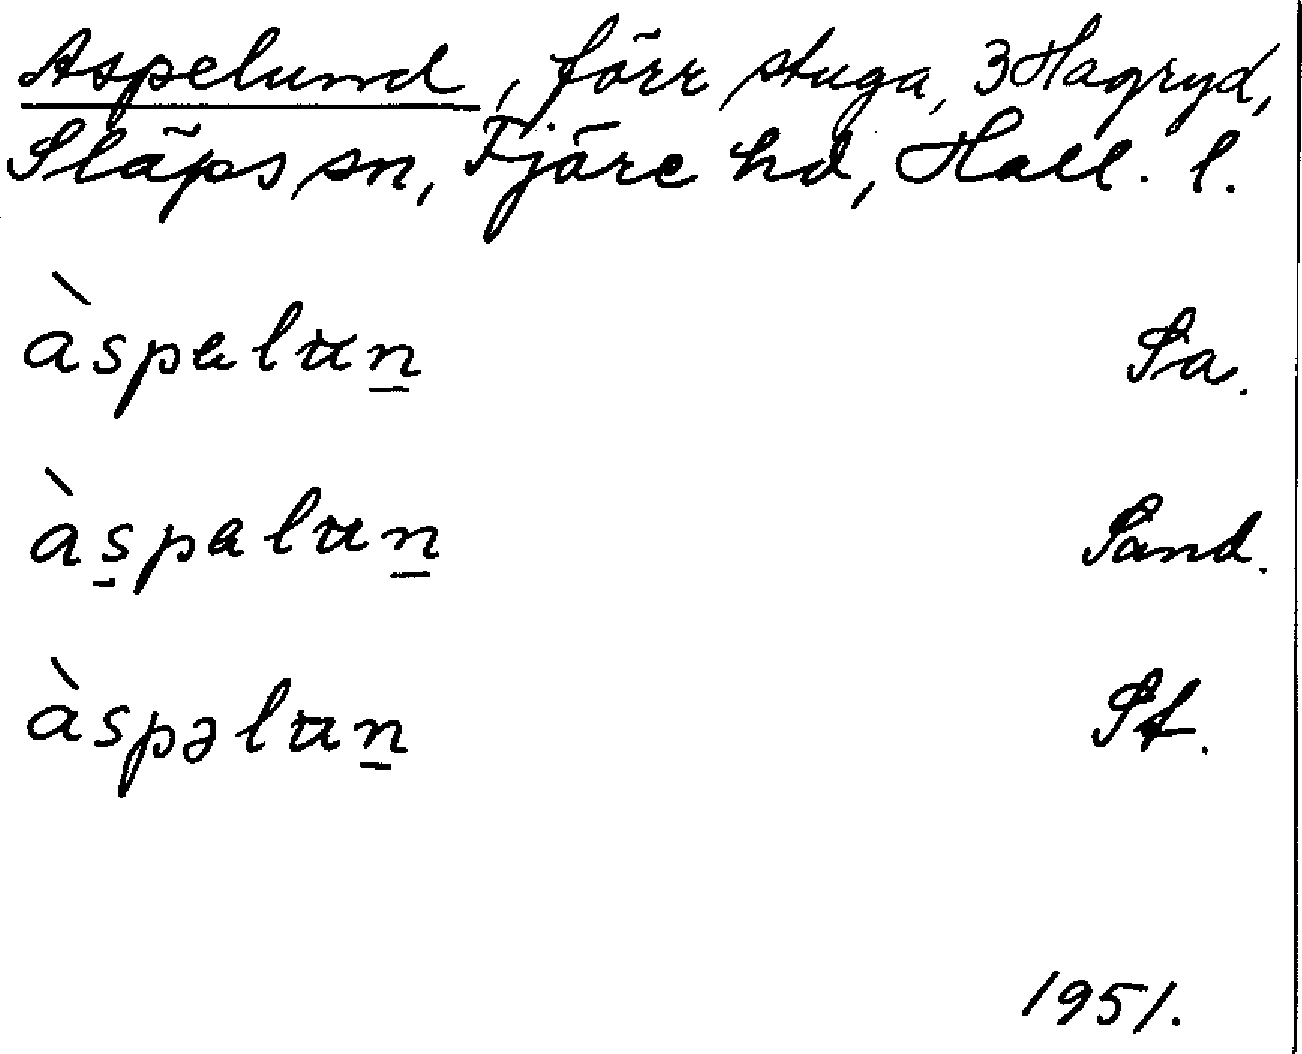 Aspelund, förr stuga, 3 Hagryd,
Släps sn, Fjäre hd, Hall. l.
àspalun̲ Sa.
às̲palun̲ Sand.
àspəlun̲ St.
1951.